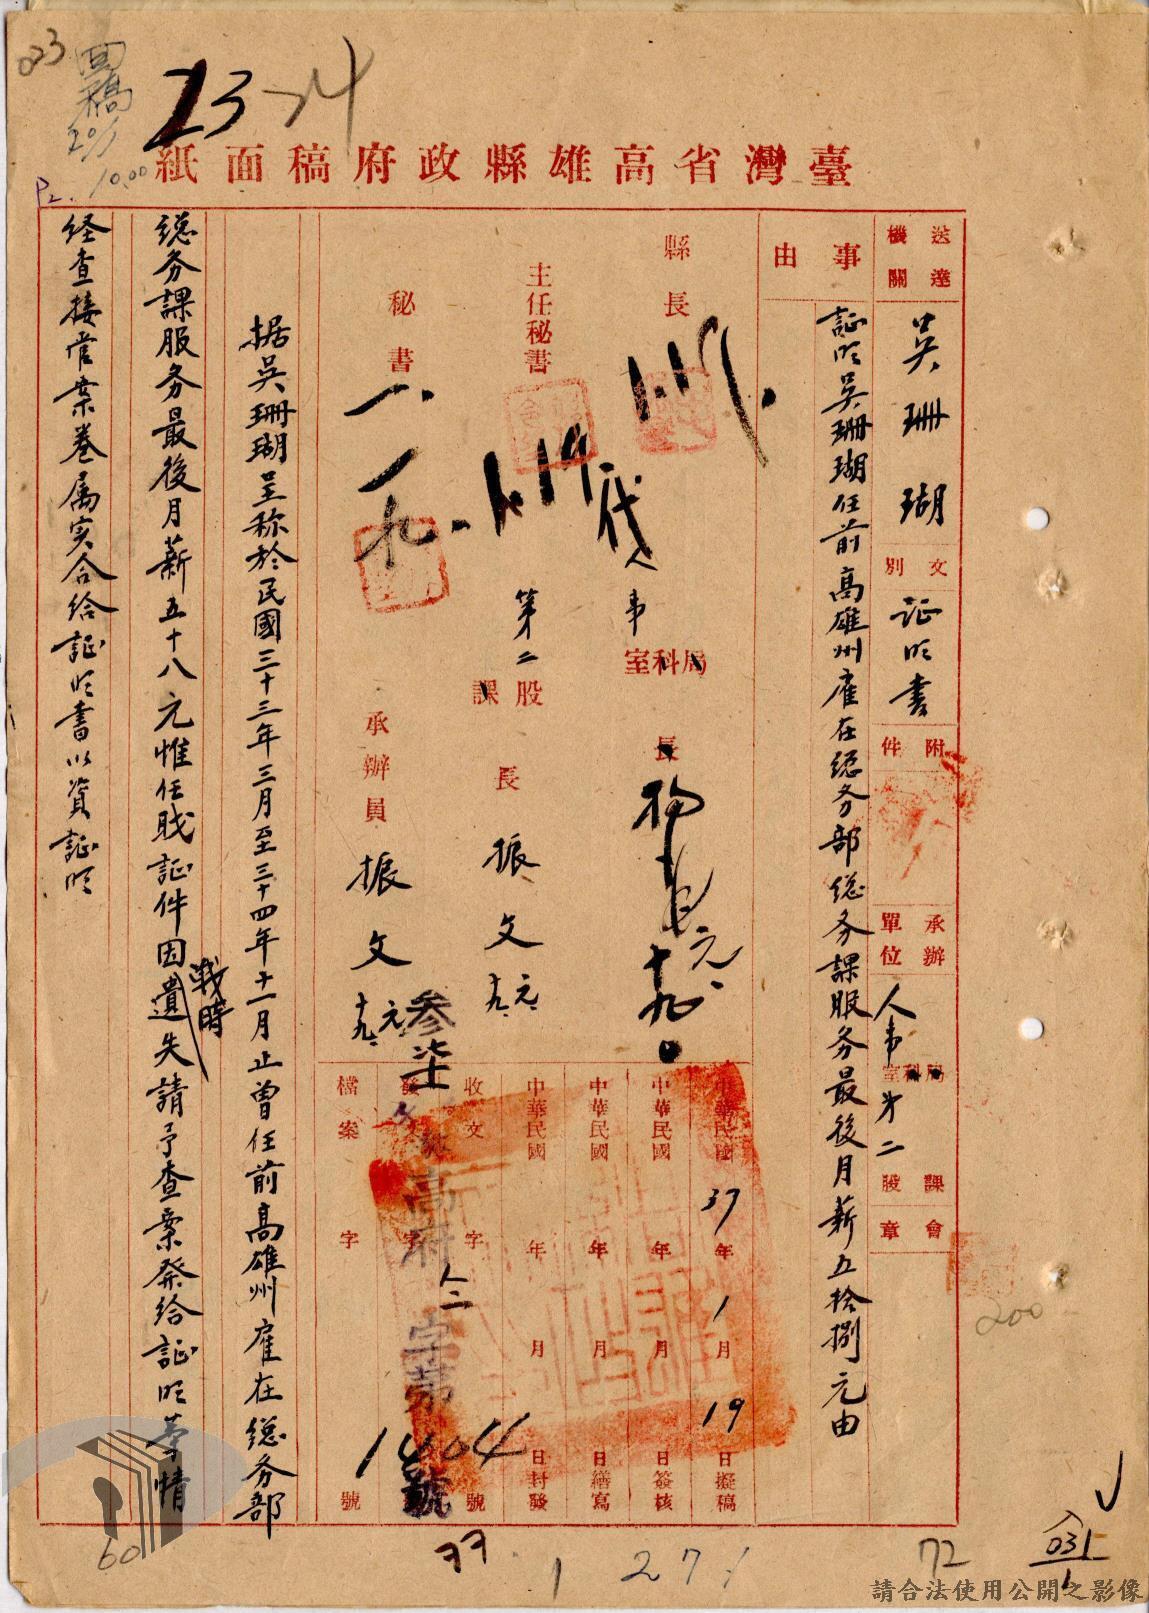 023
回稿
20/1
10.00
P2.
23 24
臺灣省高雄縣政府稿面紙
送達機關
吳珊瑚
文別
証明書
附件
承辦單位
人事室科局
第二
課股
會章
事由
証明吳珊瑚任前高雄州雇在総务部総务課服务最後月薪五拾捌元由
縣長
代
人事
室科局長
十九
主任秘書
第二
課股長
振文
元.十九.
秘書
一.一九.
承辦員
振文
元.十九.
中華民國37年1月19日擬稿
中華民國 年 月 日簽核
中華民國 年 月 日繕寫
中華民國 年 月 日封發
收文 字 號
發文 字 號
参柒
高府
人二
字第
1404
號
檔案 字 號
据吳珊瑚呈称於民國三十三年三月至三十四年十一月止曾任前高雄州雇在総务部
総务課服务最後月薪五十八元惟任職証件因戰時遺失請予查案發給証明等情
経查接管案卷属实合給証明書以資証明
200
60
77
1
27
72
031
請合法使用公開之影像